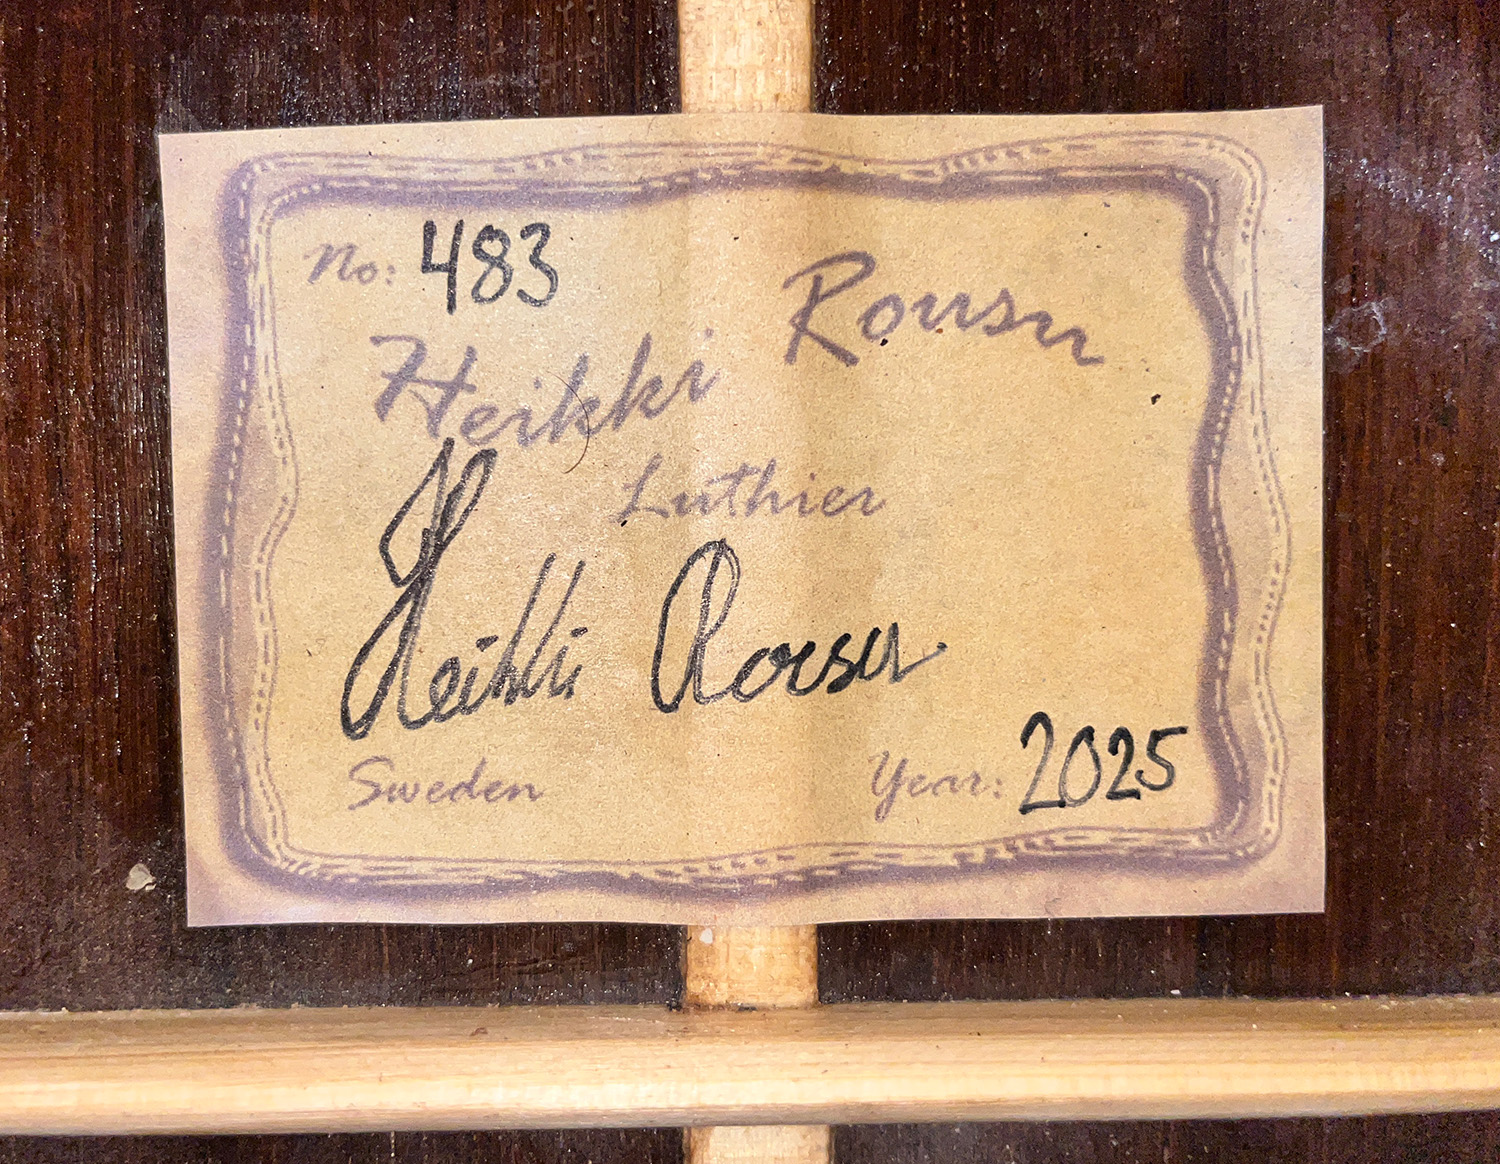 No: 483
Heikki Rousu
Luthier
Heikki Rousu
Sweden Year: 2025